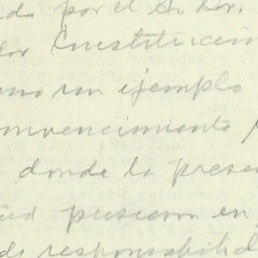 do por el Sr. Dr.
dor Constitución
omo un ejemplo
onvencimiento
donde la presen
tud pusieron en
de responsabilid